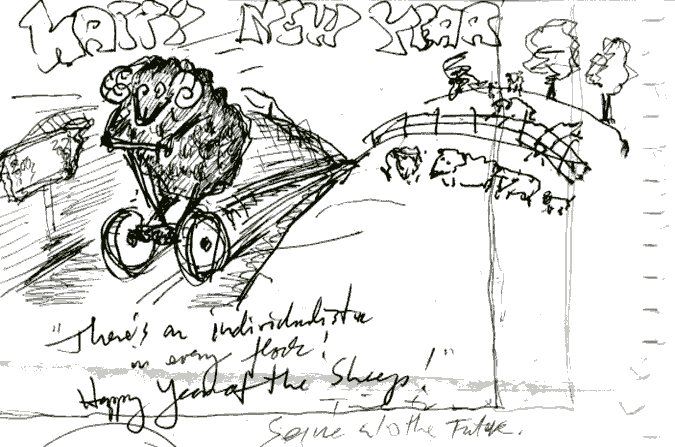 HAPPY NEW YEAR
"There's an individualist
in every flock!
Happy Year of the Sheep!"
the Future.